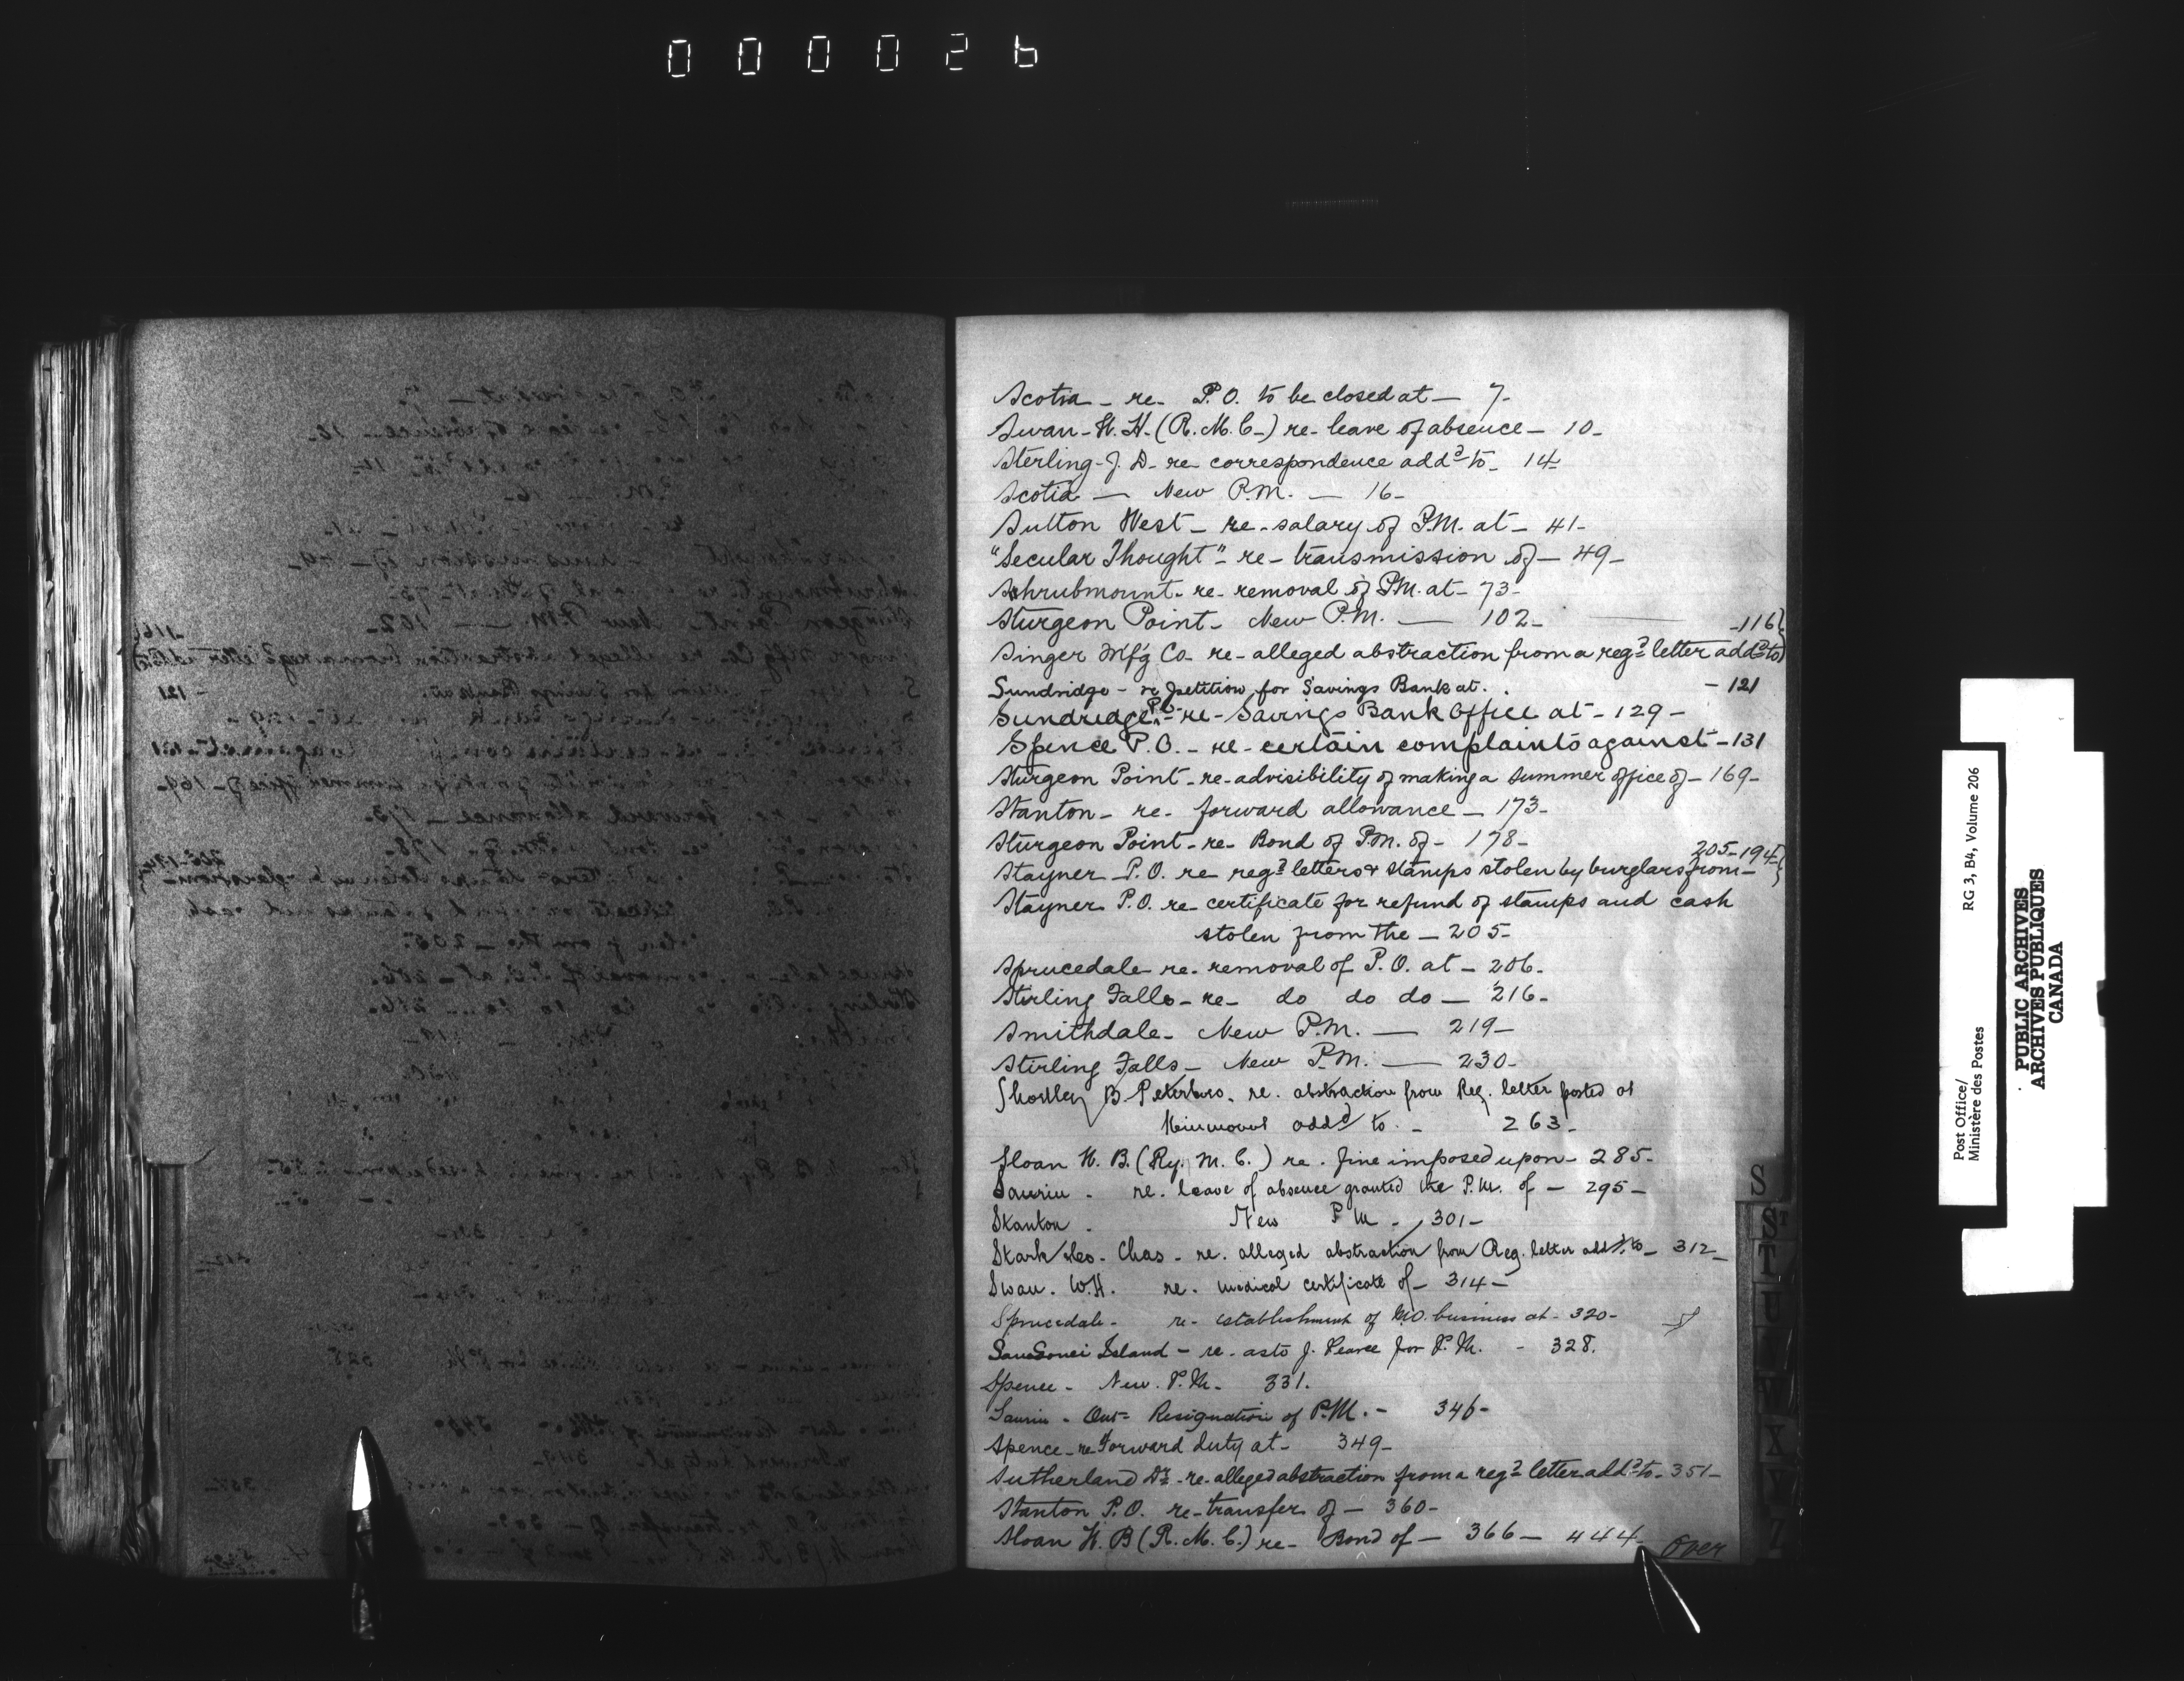 000026
Scotia - re - P.O. to be closed at - 7-
Swan - W. H. - (R. M. C.) re - leave of absence - 10-
Sterling - J. D. - re correspondence addd to - 14-
Scotia - New P.M. - 16-
Sutton West - re - salary of P.M. at - 41-
"Secular Thought" - re - transmission of - 49-
Shrubmount - re - removal of P.M. at - 73-
Sturgeon Point - New P.M. - 102-
-116
Singer Mf'g Co - re - alleged abstraction from a regd letter addd to
Sundridge - re petition for Savings Bank at. - 121
Sundridge P.O. - re - Savings Bank Office at - 129-
Spence P.O. - re - certain complaints against - 131
Sturgeon Point - re - advisibility of making a summer office of - 169-
Stanton - re - forward allowance - 173-
Sturgeon Point - re - Bond of P.M. of - 178-
205-194-
Stayner - P.O. re regd letters & stamps stolen by burglars from -
Stayner P.O. re certificate for refund of stamps and cash
stolen from the - 205-
Sprucedale - re - removal of P.O. at - 206-
Stirling Falls - re - do do do - 216-
Smithdale - New P.M. - 219-
Stirling Falls - New P.M. - 230-
B. Peterboro. re. abstraction from Reg. letter posted at
Kinmount addd to - 263-
Sloan W. B. (Ry. M. C.) re. fine imposed upon - 285-
Saurin - re. leave of absence granted the P.M. of - 295-
Stanton - New P M - 301-
Stark Geo. Chas - re. alleged abstraction from Reg. letter addd to - 312-
Swan. W.H. re. medical certificate of - 314-
Sprucedale - re - establishment of M.O. business at - 320-
Sans Souci Island - re. as to J. Pearce for P.M. - 328.
Spence - New. P.M. - 331.
Saurin - Ont - Resignation of P.M. - 346-
Spence - re Forward duty at - 349-
Sutherland Dr - re - alleged abstraction from a regd letter addd to - 351-
Stanton P.O. re - transfer of - 360-
Sloan W. B (R. M. C.) re - Bond of - 366 - 444-
Over
S
ST
T
U
V
X
Y
Z
Post Office/
Ministère des Postes
RG 3, B4, Volume 206
PUBLIC ARCHIVES
ARCHIVES PUBLIQUES
CANADA